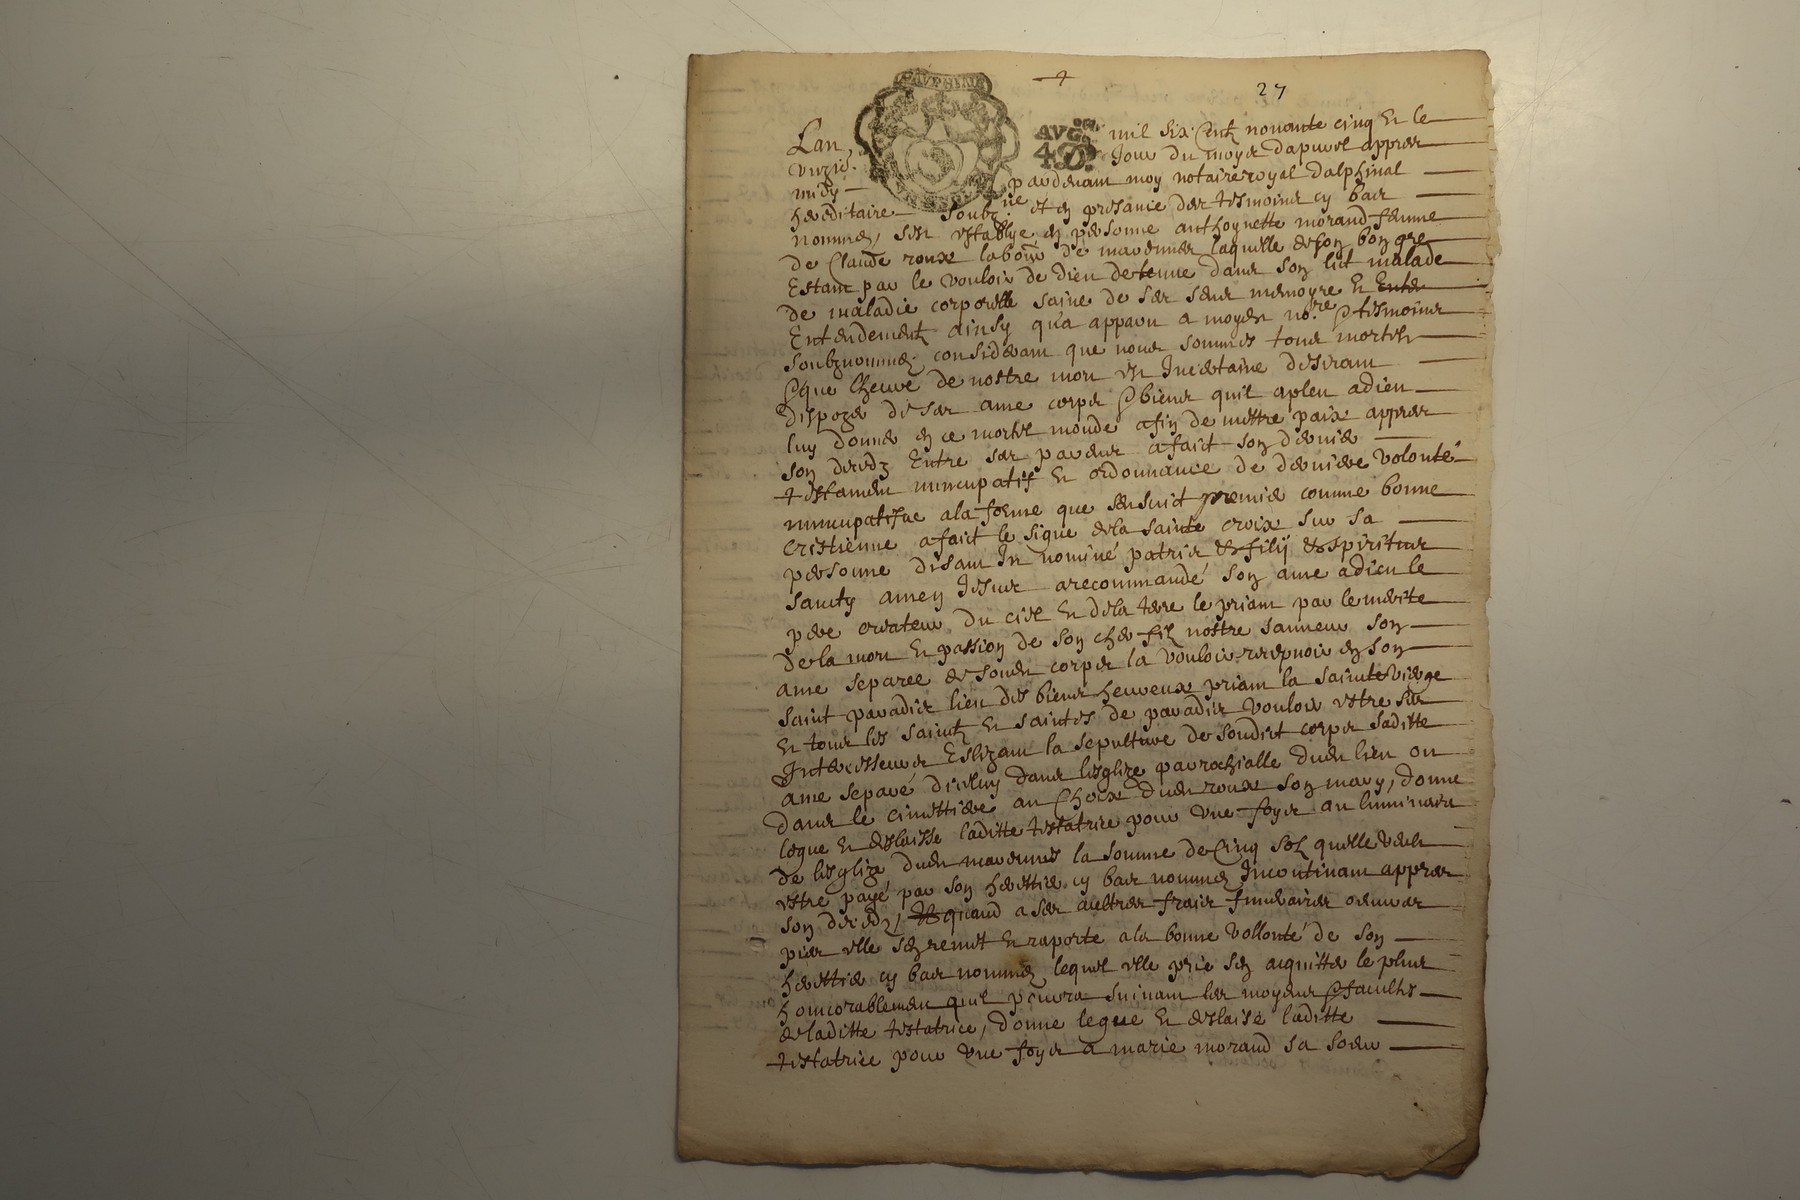 27
AVG
Lan mil six Centz nonante cinq En le
Jour du moys dapvril appres
midy pardevant moy notaire royal dalphinal
hereditaire soubzne et en presance des tesmoins cy bas
nommes, sest establye en personne anthoynette morand femme
de Claude roux labour de laquelle de son bon gre
Estant par le vouloir de dieu detenue dans son lict malade
de maladie corporelle saine de ses sens memoyre En
Entendement ainsy qua apparu a moydit nore & tesmoins
soubznommes considerant que nous sommes tous mortels
& que lheure de nostre mort est Incertaine desirant
disposer de ses ame corps & biens quil a pleu a dieu
luy donner en ce mortel monde afin de mettre paix appres
son decedz Entre ses parens a faict son dernier
testament nuncupatif En ordonnance de derniere volonté
nuncupatifve a la forme que sensuit premier comme bonne
crestienne a faict le signe de la sainte croix sur sa
personne disant In nominé patris et filij et spiritus
santy amen Jesus a recommandé son ame a dieu le
pere createur du ciel En de la terre le priant par le merite
de la mort En passion de son cher filz nostre sauveur son
ame separee de son corps la vouloir recepvoir en son
saint paradis lieu des bienheureux priant la sainte vierge
En tous les saintz En saintes de paradis vouloir estre ses
Intercesseurs Eslizant la sepulture de soudict corps saditte
ame separé diceluy dans lesglize parrochialle dudt lieu ou
dans le cimettiere au Choix dudt roux son mary, donne
legue En deslaisse laditte testatrice pour une foys au luminaire
de lesglize dudt la somme de Cinq solz quelle veut
estre payé par son herettier cy bas nommé Incontinant appres
son decedz, quand a ses aultres frais funeraires
pies elle sen remet En raporte a la bonne vollonté de son
herettier cy bas nommé lequel elle prie sen aquitter le plus
honnorablement quil pourra suivant les moyens & facultes
de laditte testatrice, donne legue En deslaise laditte
testatrice pour une foys a marie morand sa soeur